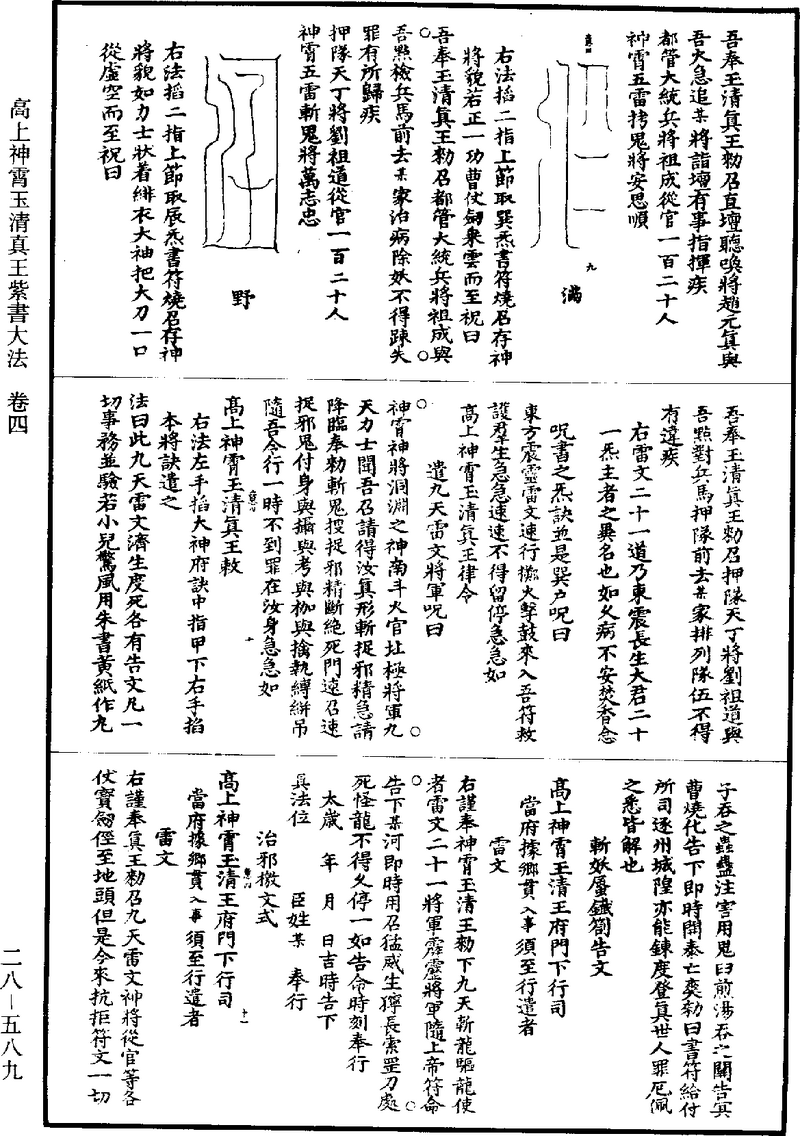 吾奉玉清真王勑召直壇聽喚將趙元真與
吾火急追某將詣壇有事指揮疾
都管大統兵將祖成從官一百二十人
神霄五雷拷鬼將安思順
九
滿
右法掐二指上節取巽炁書符燒召存神
將貌若正一功曹仗劒乘雲而至祝曰
吾奉玉清真王勑召都管大統兵將祖成與
吾點檢兵馬前去某家治病除妖不得踈失
罪有所歸疾
押隊天丁將劉祖道從官一百二十人
神霄五雷斬鬼將萬志忠
野
右法掐二指上節取辰炁書符燒召存神
將貌如力士狀着緋衣大袖把大刀一口
從虛空而至祝曰
吾奉玉清真王勑召押隊天丁將劉祖道與
吾點對兵馬押隊前去某家排列隊伍不得
有違疾
右雷文二十一道乃東震長生大君二十
一炁主者之異名也如久病不安焚香念
呪書之炁訣並是巽戶呪曰
東方震靈雷文速行擲火擊鼓來入吾符救
護羣生急急速速不得留停急急如
高上神霄玉清真王律令
遣九天雷文將軍呪曰
神霄神將洞淵之神南斗火官北極將軍九
天力士聞吾召請得汝真形斬捉邪精急請
降臨奉勑斬鬼捉邪精斷絕死門速召速
捉邪鬼付身與攝與考與枷與擒執縛絣吊
隨吾令行一時不到罪在汝身急急如
高上神霄玉清真王敕
十
右法左手掐大神府訣中指甲下右手掐
本將訣遣之
法曰此九天雷文濟生度死各有告文凡一
切事務並驗若小兒驚風用朱書黃紙作九
子吞之蟲蠱注害用鬼臼煎湯吞之關告冥
曹燒化告下即時間泰亡奕勑曰書符給付
所司逐州城隍亦能鍊度登真世人罪厄佩
之悉皆解也
斬妖屬鐵簡告文
高上神霄玉清王府門下行司
當府據鄉貫入事須至行遣者
雷文
右謹奉神霄玉清王勑下九天斬龍驅龍使
者雷文二十一將軍霹靂將軍隨上帝符命
告下某河即時用召猛威生獰長索罡刀處
死怪龍不得久停一如告命時刻奉行
太歲 年 月 日吉時告下
具法位 臣姓某 奉行
治邪檄文式
高上神霄玉清王府門下行司
十一
當府據鄉貫入事須至行遣者
雷文
右謹奉真王勑召九天雷文神將從官等各
仗寶劒徑至地頭但是今來抗拒符文一切
高上神霄玉清真王紫書大法 卷四
二八—五八九